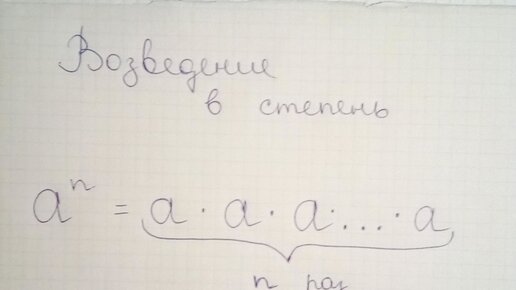 Возведение
в степень
aⁿ = a · a · a · ... · a
n раз